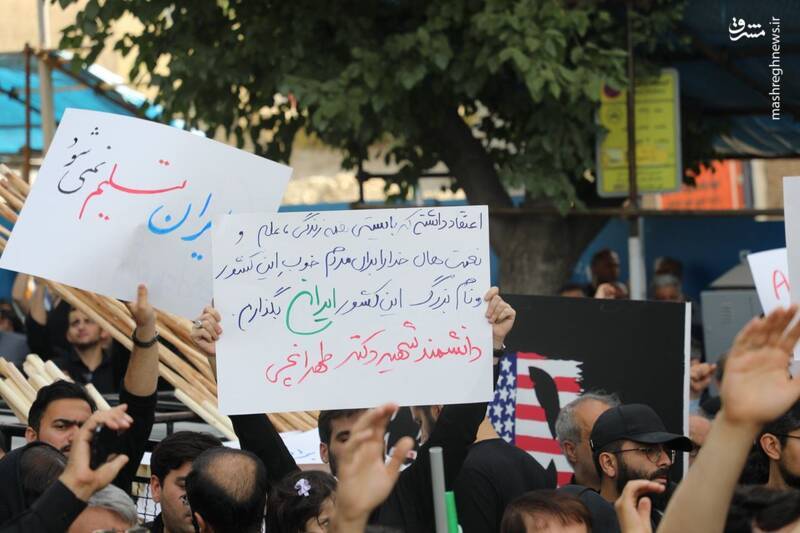 مشرق
mashreghnews.ir
ایران تسلیم نمی شود
اعتقاد داشته که بایستی همه زندگی ما علم و
نعمت های خدا را برای مردم خوب این کشور
و نام بزرگ این کشور ایران بگذاریم.
دانشمند شهید دکتر طهرانچی